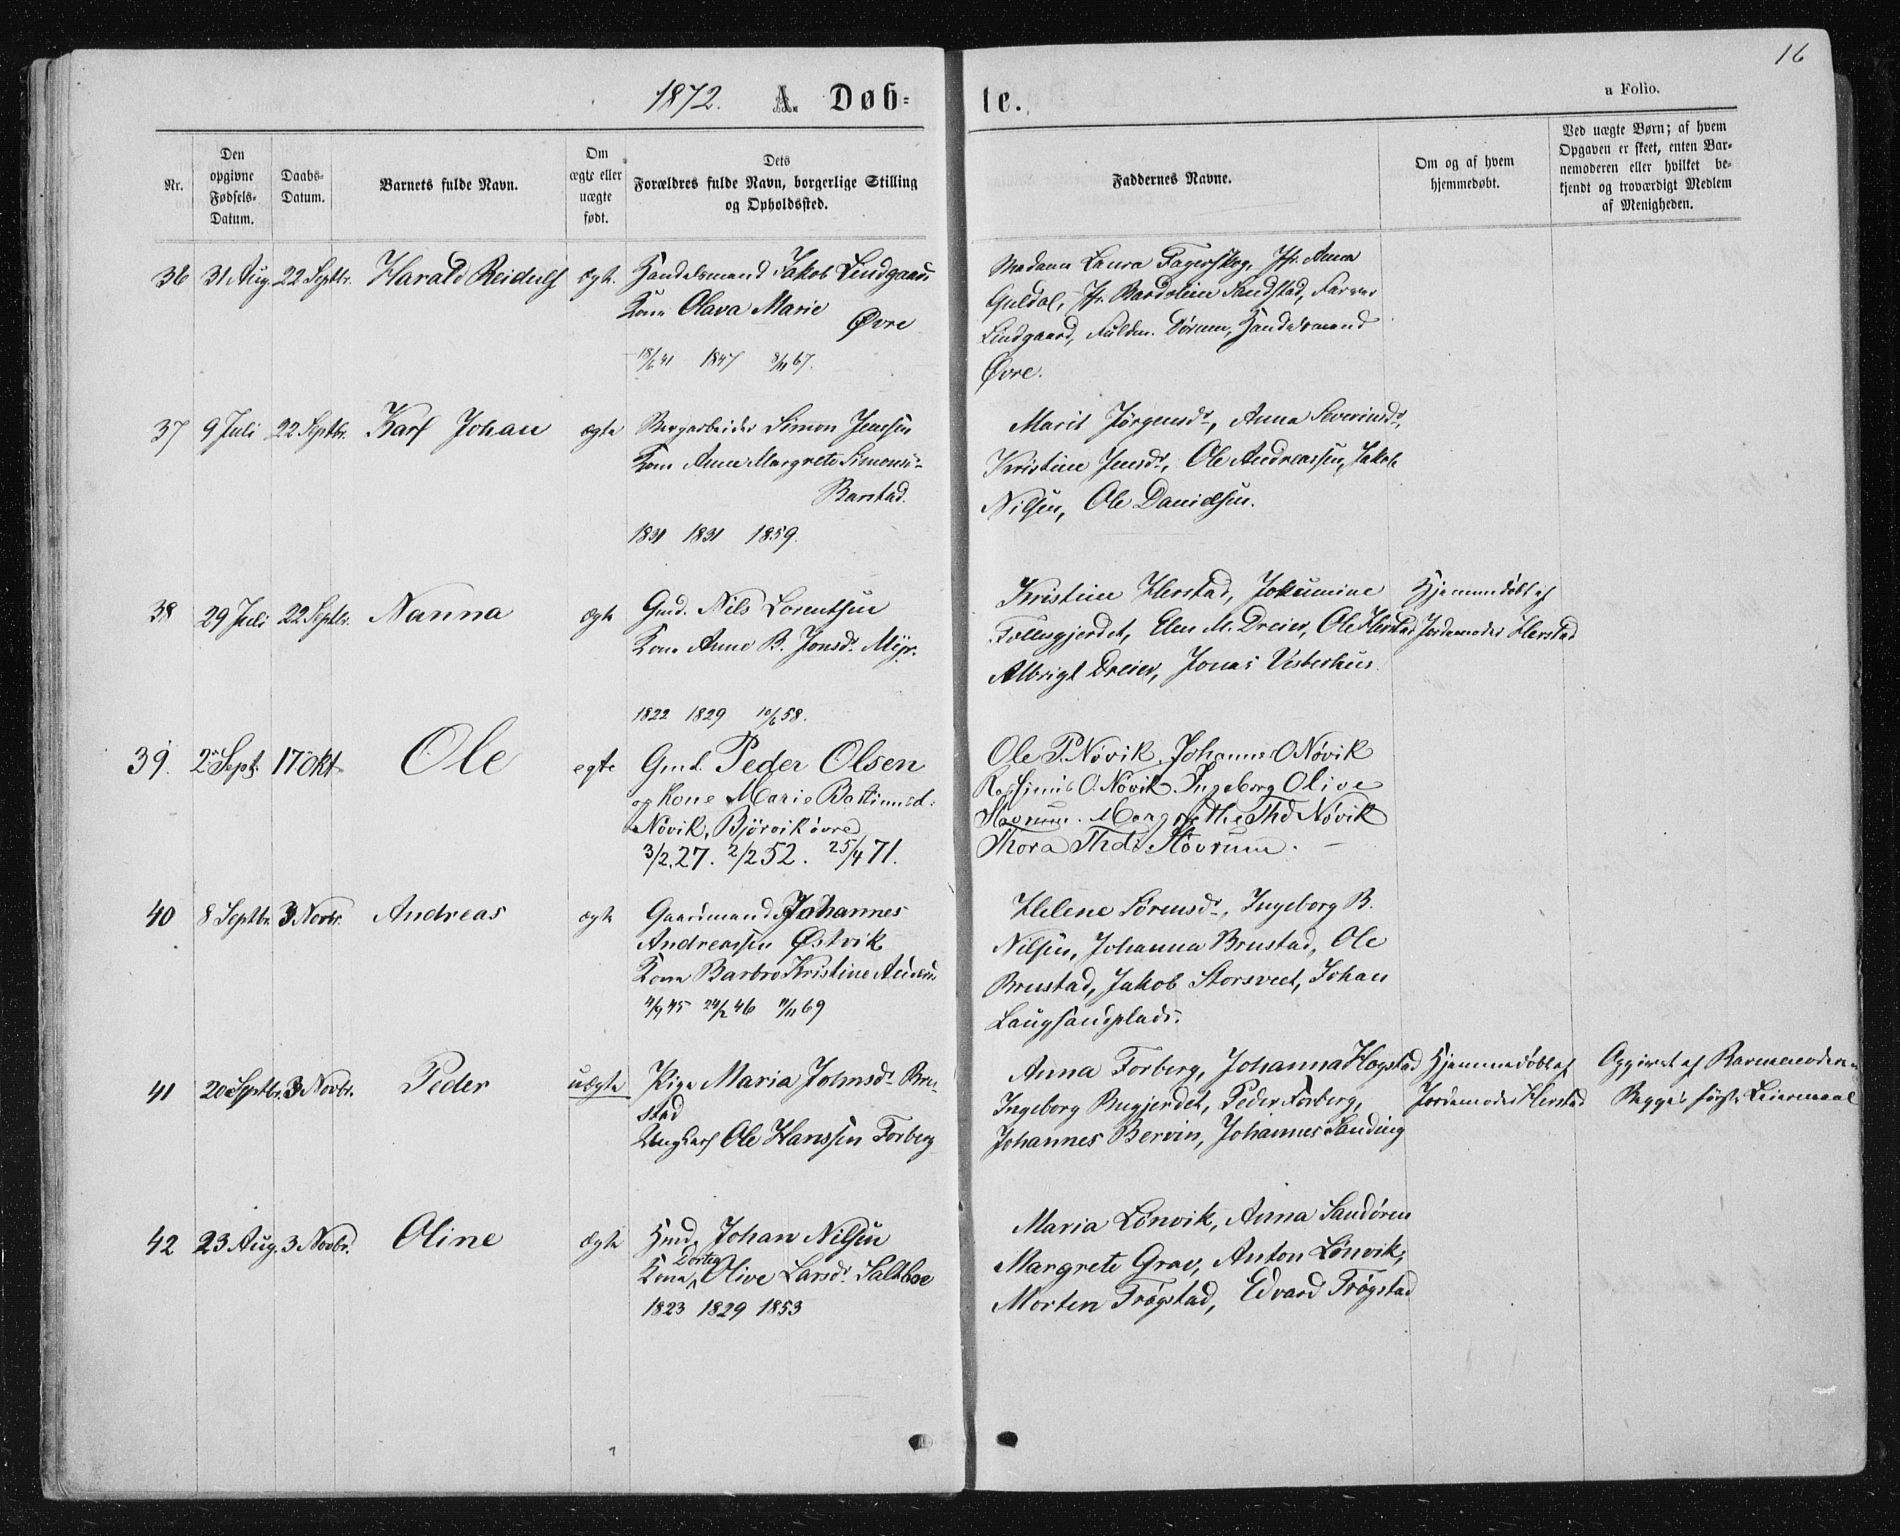 16
1872. A. Døb-
te.
a Folio.
Nr.
Den opgivne Fødsels-Datum.
Daabs-Datum.
Barnets fulde Navn.
Om ægte eller uægte født.
Dets Forældres fulde Navn, borgerlige Stilling og Opholdssted.
Faddernes Navne.
Om og af hvem hjemmedøbt.
Ved uægte Børn; af hvem Opgaven er skeet, enten Barnemoderen eller hvilket bekjendt og troværdigt Medlem af Menigheden.
36 31 Aug. 22 Septbr. Harald Reidulf ægte
Handelsmand Jakob Lindgaard
Kone Olava Marie
Øvre
18/6 41 1847 8/11 67.
Madame Laura Fagerskog, Jfr. Anna
Guldal, Jfr. Sandstad, Farver
Lindgaard, Fuldm. Sørum, Handelsmand
Øvre.
37 9 Juli 22 Septbr. Karl Johan ægte
Bergarbeider Simon Jenssen
Kone Anne Margrete Simonsd.
Barstad.
1831 1831 1859.
Marit Jørgensdr, Anna Severinsdr,
Kristine Jensdr, Ole Andreassen, Jakob
Nilsen, Ole Danielsen.
38 29 Juli 22 Septbr. Nanna ægte
Gmd. Nils Lorentsen
Kone Anne B. Jonsdr. Myr.
1822 1829 10/6 58.
Kristine Herstad, Jokumine
Follesgjerdet, Elen M. Dreier, Ole Herstad
Albrigt Dreier, Jonas Vesterhus.
Hjemmedøbt af
Jordemoder Herstad
39. 2 Sept. 17 Okt. Ole egte
Gmd. Peder Olsen
og Kone Marie Bastiansd:
Nøvik, Bjørvik øvre
3/2.27. 2/2 52. 25/4 71.
Ole P. Nøvik, Johannes O Nøvik
Rasmus O. Nøvik. Ingeborg Olive
Støvrum. Margrethe Thd Nøvik
Thora Thdr Støvrum.
40 8 Septbr. 3 Novbr. Andreas ægte
Gaardmand Johannes
Andreassen Østvik
Kone Barbro Kristine Andersd.
4/9 45 24/2 46 11/11 69
Helene Sørensdr, Ingeborg B.
Nilsen, Johanna Brustad, Ole
Brustad, Jakob Storsveet, Johan
Laugsandplads.
41 20 Septbr. 3 Novbr. Peder uægte
Pige Maria Johnsdr Bru-
stad
Ungkarl Ole Hanssen Forberg
Anna Forberg, Johanna Hogstad
Ingeborg Brugjerdet, Peder Forberg,
Johannes Bervin, Johannes Sanding
Hjemmedøbt af
Jordemoder Herstad
Opgivet af Barnemoderen
Begges første Leiermaal
42 23 Aug. 3 Novbr. Oline ægte
Hmd. Johan Nilsen
Kone Dortea Olive Larsdr. Saltboe
1823 1829 1853
Maria Lønvik, Anna Sandøren
Margrete Grav, Anton Lønvik,
Morten Frøgstad, Edvard Frøgstad